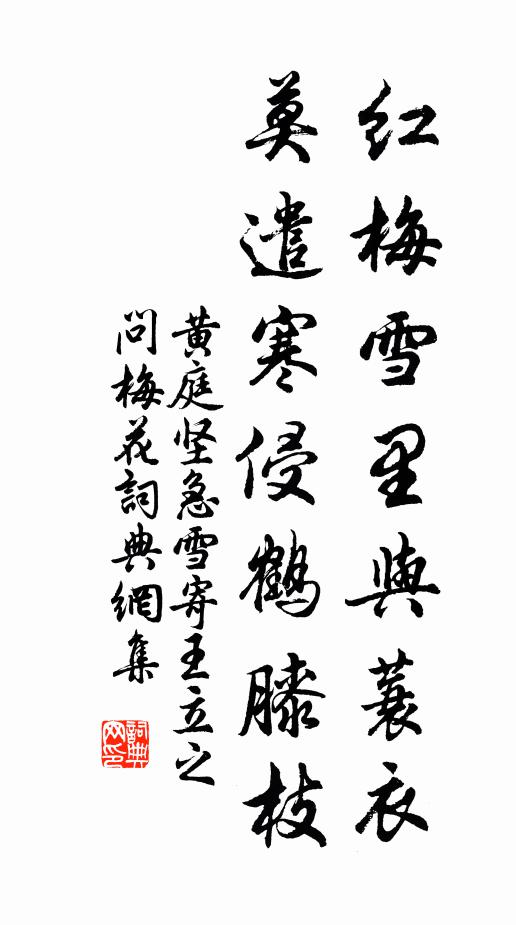 红梅雪里與蓑衣
莫遣寒侵鶴膝枝
黄庭坚急雪寄王立之
问梅花詞典網集
詞典
网印